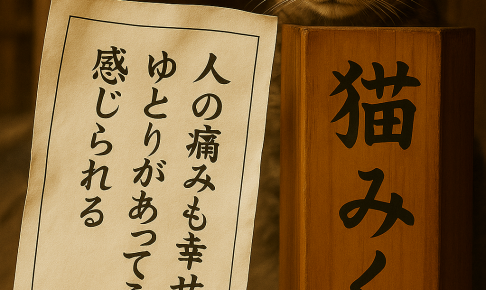 人の痛みも幸せ
ゆとりがあってこ
感じられる
猫みく